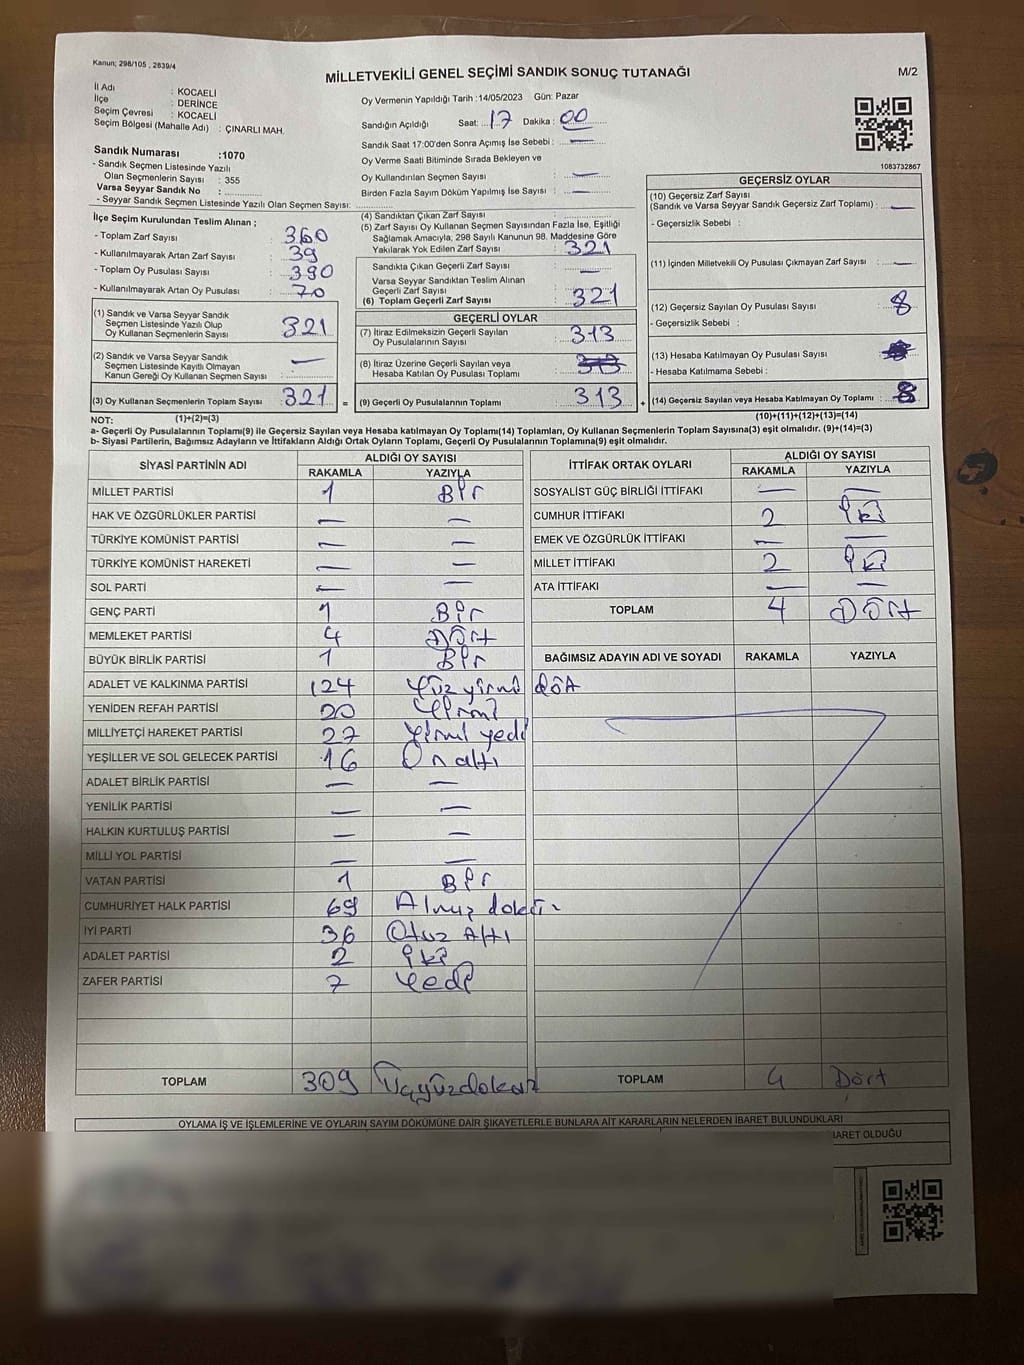 Kanun; 298/105 , 2839/4
MİLLETVEKİLİ GENEL SEÇİMİ SANDIK SONUÇ TUTANAĞI
M/2
İl Adı : KOCAELİ
İlçe : DERİNCE
Seçim Çevresi : KOCAELİ
Seçim Bölgesi (Mahalle Adı) : ÇINARLI MAH.
Sandık Numarası :1070
- Sandık Seçmen Listesinde Yazılı
Olan Seçmenlerin Sayısı : 355
Varsa Seyyar Sandık No :
- Seyyar Sandık Seçmen Listesinde Yazılı Olan Seçmen Sayısı:
Oy Vermenin Yapıldığı Tarih :14/05/2023 Gün: Pazar
Sandığın Açıldığı Saat: 17 Dakika : 00
Sandık Saat 17:00'den Sonra Açımış İse Sebebi : —
Oy Verme Saati Bitiminde Sırada Bekleyen ve
Oy Kullandırılan Seçmen Sayısı : —
Birden Fazla Sayım Döküm Yapılmış İse Sayısı : —
1083732867
İlçe Seçim Kurulundan Teslim Alınan ;
- Toplam Zarf Sayısı : 360
- Kullanılmayarak Artan Zarf Sayısı : 39
- Toplam Oy Pusulası Sayısı : 390
- Kullanılmayarak Artan Oy Pusulası : 70
(1) Sandık ve Varsa Seyyar Sandık
Seçmen Listesinde Yazılı Olup
Oy Kullanan Seçmenlerin Sayısı : 321
(2) Sandık ve Varsa Seyyar Sandık
Seçmen Listesinde Kayıtlı Olmayan
Kanun Gereği Oy Kullanan Seçmen Sayısı : —
(3) Oy Kullanan Seçmenlerin Toplam Sayısı : 321 =
(4) Sandıktan Çıkan Zarf Sayısı :
(5) Zarf Sayısı Oy Kullanan Seçmen Sayısından Fazla İse, Eşitliği
Sağlamak Amacıyla; 298 Sayılı Kanunun 98. Maddesine Göre
Yakılarak Yok Edilen Zarf Sayısı : 321
Sandıkta Çıkan Geçerli Zarf Sayısı : —
Varsa Seyyar Sandıktan Teslim Alınan
Geçerli Zarf Sayısı
(6) Toplam Geçerli Zarf Sayısı : 321
GEÇERLİ OYLAR
(7) İtiraz Edilmeksizin Geçerli Sayılan
Oy Pusulalarının Sayısı : 313
(8) İtiraz Üzerine Geçerli Sayılan veya
Hesaba Katılan Oy Pusulası Toplamı : 313
(9) Geçerli Oy Pusulalarının Toplamı : 313 +
GEÇERSİZ OYLAR
(10) Geçersiz Zarf Sayısı
(Sandık ve Varsa Seyyar Sandık Geçersiz Zarf Toplamı) : —
- Geçersizlik Sebebi :
(11) İçinden Milletvekili Oy Pusulası Çıkmayan Zarf Sayısı : —
(12) Geçersiz Sayılan Oy Pusulası Sayısı : 8
- Geçersizlik Sebebi :
(13) Hesaba Katılmayan Oy Pusulası Sayısı :
- Hesaba Katılmama Sebebi :
(14) Geçersiz Sayılan veya Hesaba Katılmayan Oy Toplamı : 8
NOT: (1)+(2)=(3) (10)+(11)+(12)+(13)=(14)
a- Geçerli Oy Pusulalarının Toplamı(9) ile Geçersiz Sayılan veya Hesaba katılmayan Oy Toplamı(14) Toplamları, Oy Kullanan Seçmenlerin Toplam Sayısına(3) eşit olmalıdır. (9)+(14)=(3)
b- Siyasi Partilerin, Bağımsız Adayların ve İttifakların Aldığı Ortak Oyların Toplamı, Geçerli Oy Pusulalarının Toplamına(9) eşit olmalıdır.
SİYASİ PARTİNİN ADI ALDIĞI OY SAYISI
RAKAMLA YAZIYLA
MİLLET PARTİSİ 1 Bir
HAK VE ÖZGÜRLÜKLER PARTİSİ — —
TÜRKİYE KOMÜNİST PARTİSİ — —
TÜRKİYE KOMÜNİST HAREKETİ — —
SOL PARTİ — —
GENÇ PARTİ 1 Bir
MEMLEKET PARTİSİ 4 Dört
BÜYÜK BİRLİK PARTİSİ 1 Bir
ADALET VE KALKINMA PARTİSİ 124 Yüz yirmi döt
YENİDEN REFAH PARTİSİ 20 Yirmi
MİLLİYETÇİ HAREKET PARTİSİ 27 Yirmi yedi
YEŞİLLER VE SOL GELECEK PARTİSİ 16 On altı
ADALET BİRLİK PARTİSİ — —
YENİLİK PARTİSİ — —
HALKIN KURTULUŞ PARTİSİ — —
MİLLİ YOL PARTİSİ — —
VATAN PARTİSİ 1 Bir
CUMHURİYET HALK PARTİSİ 69
İYİ PARTİ 36 Otuz Altı
ADALET PARTİSİ 2 İki
ZAFER PARTİSİ 7 Yedi
TOPLAM 309 Üçyüzdokuz
İTTİFAK ORTAK OYLARI ALDIĞI OY SAYISI
RAKAMLA YAZIYLA
SOSYALİST GÜÇ BİRLİĞİ İTTİFAKI — —
CUMHUR İTTİFAKI 2 İki
EMEK VE ÖZGÜRLÜK İTTİFAKI — —
MİLLET İTTİFAKI 2 İki
ATA İTTİFAKI — —
TOPLAM 4 Dört
BAĞIMSIZ ADAYIN ADI VE SOYADI RAKAMLA YAZIYLA
TOPLAM 4 Dört
OYLAMA İŞ VE İŞLEMLERİNE VE OYLARIN SAYIM DÖKÜMÜNE DAİR ŞİKAYETLERLE BUNLARA AİT KARARLARIN NELERDEN İBARET BULUNDUKLARI
BARET OLDUĞU